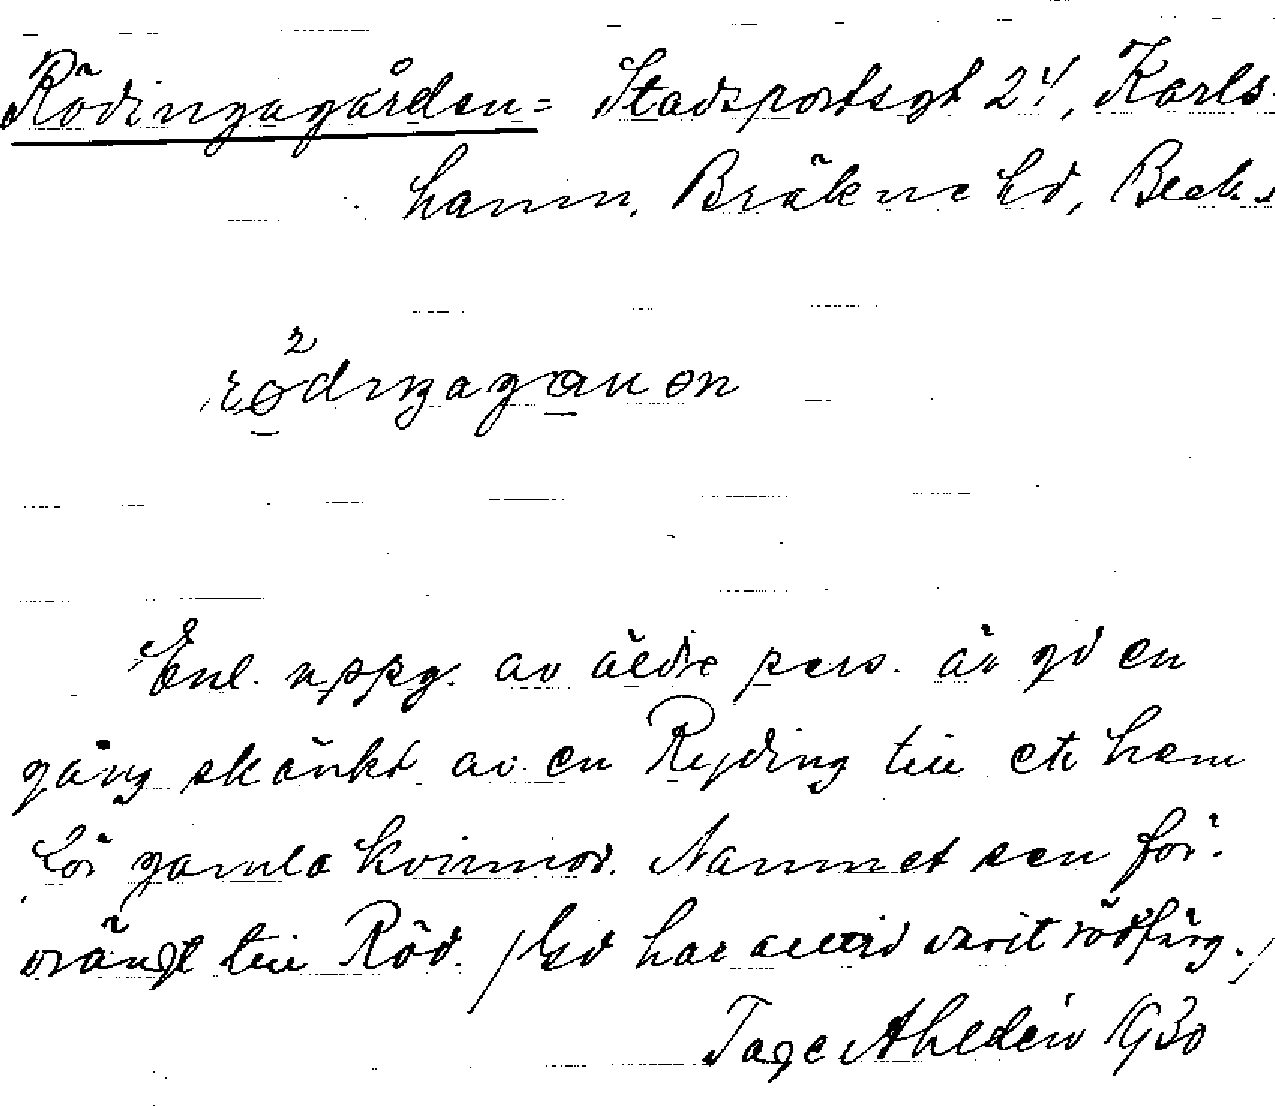 Rödingagården = Stadsportsgt 24, Karls-
hamn, Bräkne hd, Blek.
2
rödiŋagaɷen
Enl. uppg. av äldre pers. är gd en
gång skänkt av en Ryding till ett hem
för gamla kvinnor. Namnet sen för-
vrängt till Röd. /Gd har alltid varit rödfärg./
Tage Ahldén 1930